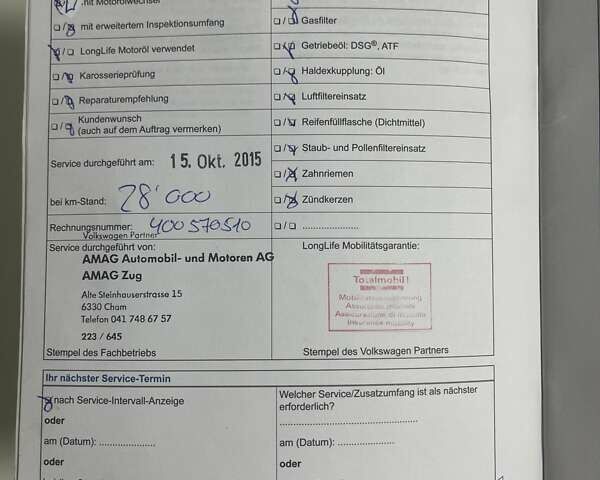 mit Motorölwechsel
mit erweitertem Inspektionsumfang
LongLife Motoröl verwendet
Karosserieprüfung
Reparaturempfehlung
Kundenwunsch
(auch auf dem Auftrag vermerken)
Service durchgeführt am: 15. Okt. 2015
bei km-Stand: 28'000
Rechnungsnummer: 400570510
Volkswagen Partner
Service durchgeführt von:
AMAG Automobil- und Motoren AG
AMAG Zug
Alte Steinhauserstrasse 15
6330 Cham
Telefon 041 748 67 57
223 / 645
Stempel des Fachbetriebs
Gasfilter
Getriebeöl: DSG®, ATF
Haldexkupplung: Öl
Luftfiltereinsatz
Reifenfüllflasche (Dichtmittel)
Staub- und Pollenfiltereinsatz
Zahnriemen
Zündkerzen
......................
LongLife Mobilitätsgarantie:
Totalmobil!
Mobilitätsversicherung
Assurance mobilité
Assicurazione di mobilità
Insurance mobility
Stempel des Volkswagen Partners
Ihr nächster Service-Termin
nach Service-Intervall-Anzeige
oder
am (Datum): ......................
oder
Welcher Service/Zusatzumfang ist als nächster
erforderlich?
.......................................................
am (Datum): ......................
oder